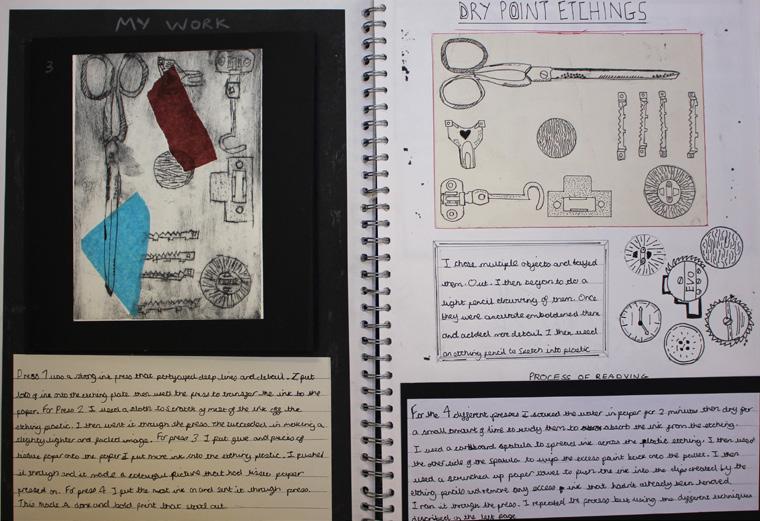 MY WORK
3
Press 1 was a strong ink press that portrayed deep lines and detail. I put
lots of ink into the etching plate then used the press to transfer the ink to the
paper. For Press 2 I used a cloth to scratch of most of the ink off the
etching plastic. I then went it through the press. This succeeded in making a
slightly lighter and faded image. For press 3 I put glue and pieces of
tissue paper onto the paper. I put more ink into the etching plastic. I pushed
it through and it made a colourful picture that had tissue paper
pressed on. For press 4 I put the most ink on and sent it through press.
This made a dark and bold print that stood out.
DRY POINT ETCHINGS
EVO
I chose multiple objects and layed
them. Out. I then began to do a
light pencil drawing of them. Once
they were accurate emboldened them
and added more detail. I then used
an etching pencil to sketch into plastic
PROCESS OF READYING
For the 4 different presses I soaked the water in paper for 2 minutes then dry for
a small amount of time to ready them to absorb the ink from the etching.
I used a cardboard spatula to spread ink across the plastic etching. I then used
the other side of the spatula to wip the excess paint back onto the pallet. I then
used a scrunched up paper towel to push the ink into the dips created by the
etching pencils and remove any excess ink that hadn't already been removed.
I ran it through the press. I repeated the process but using the different techniques
described in the left page